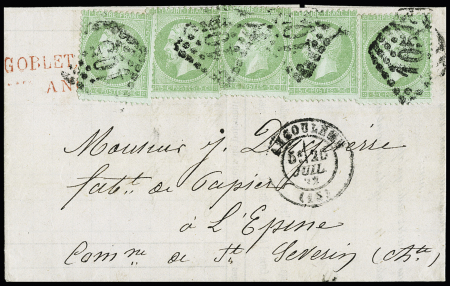 GOBLET
AN
ANGOULEME
5E 25
JUIL
(15)
Monsieur J.
fabt. de Papiers
à L'Epine
Comne de St Severin (Chte)